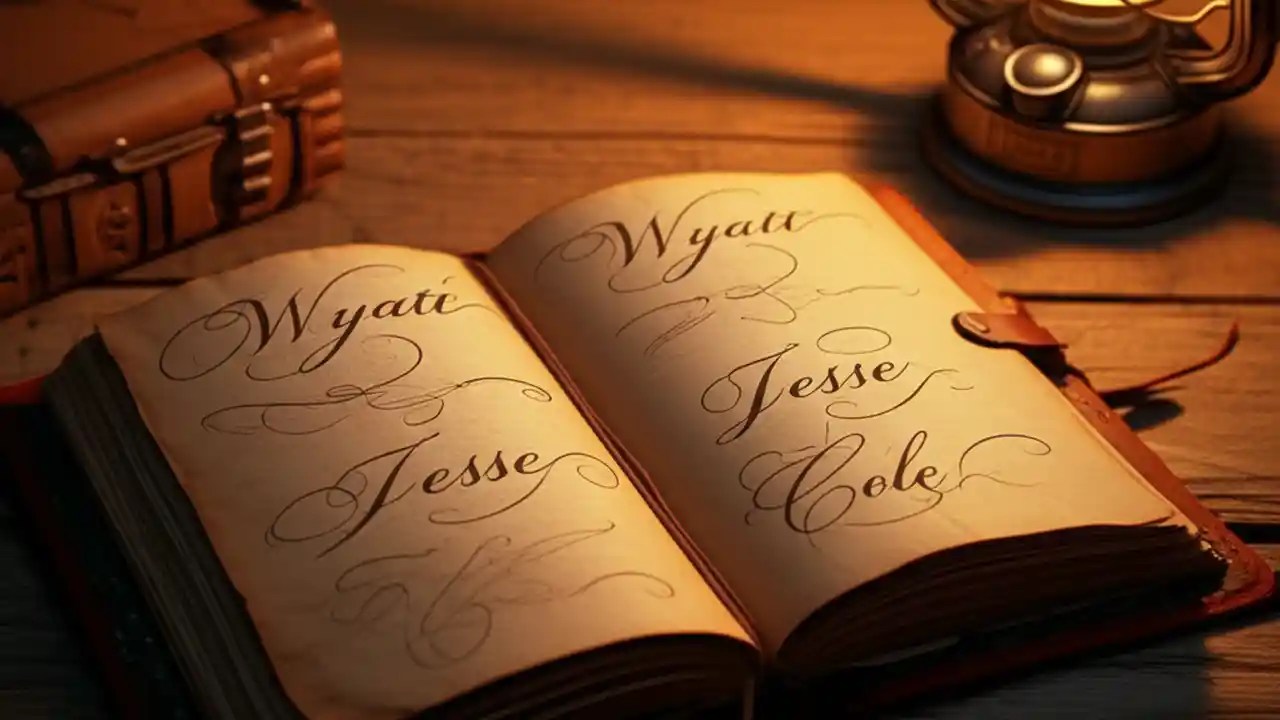 Wyatt
Jesse
Wyatt
Jesse
Cole